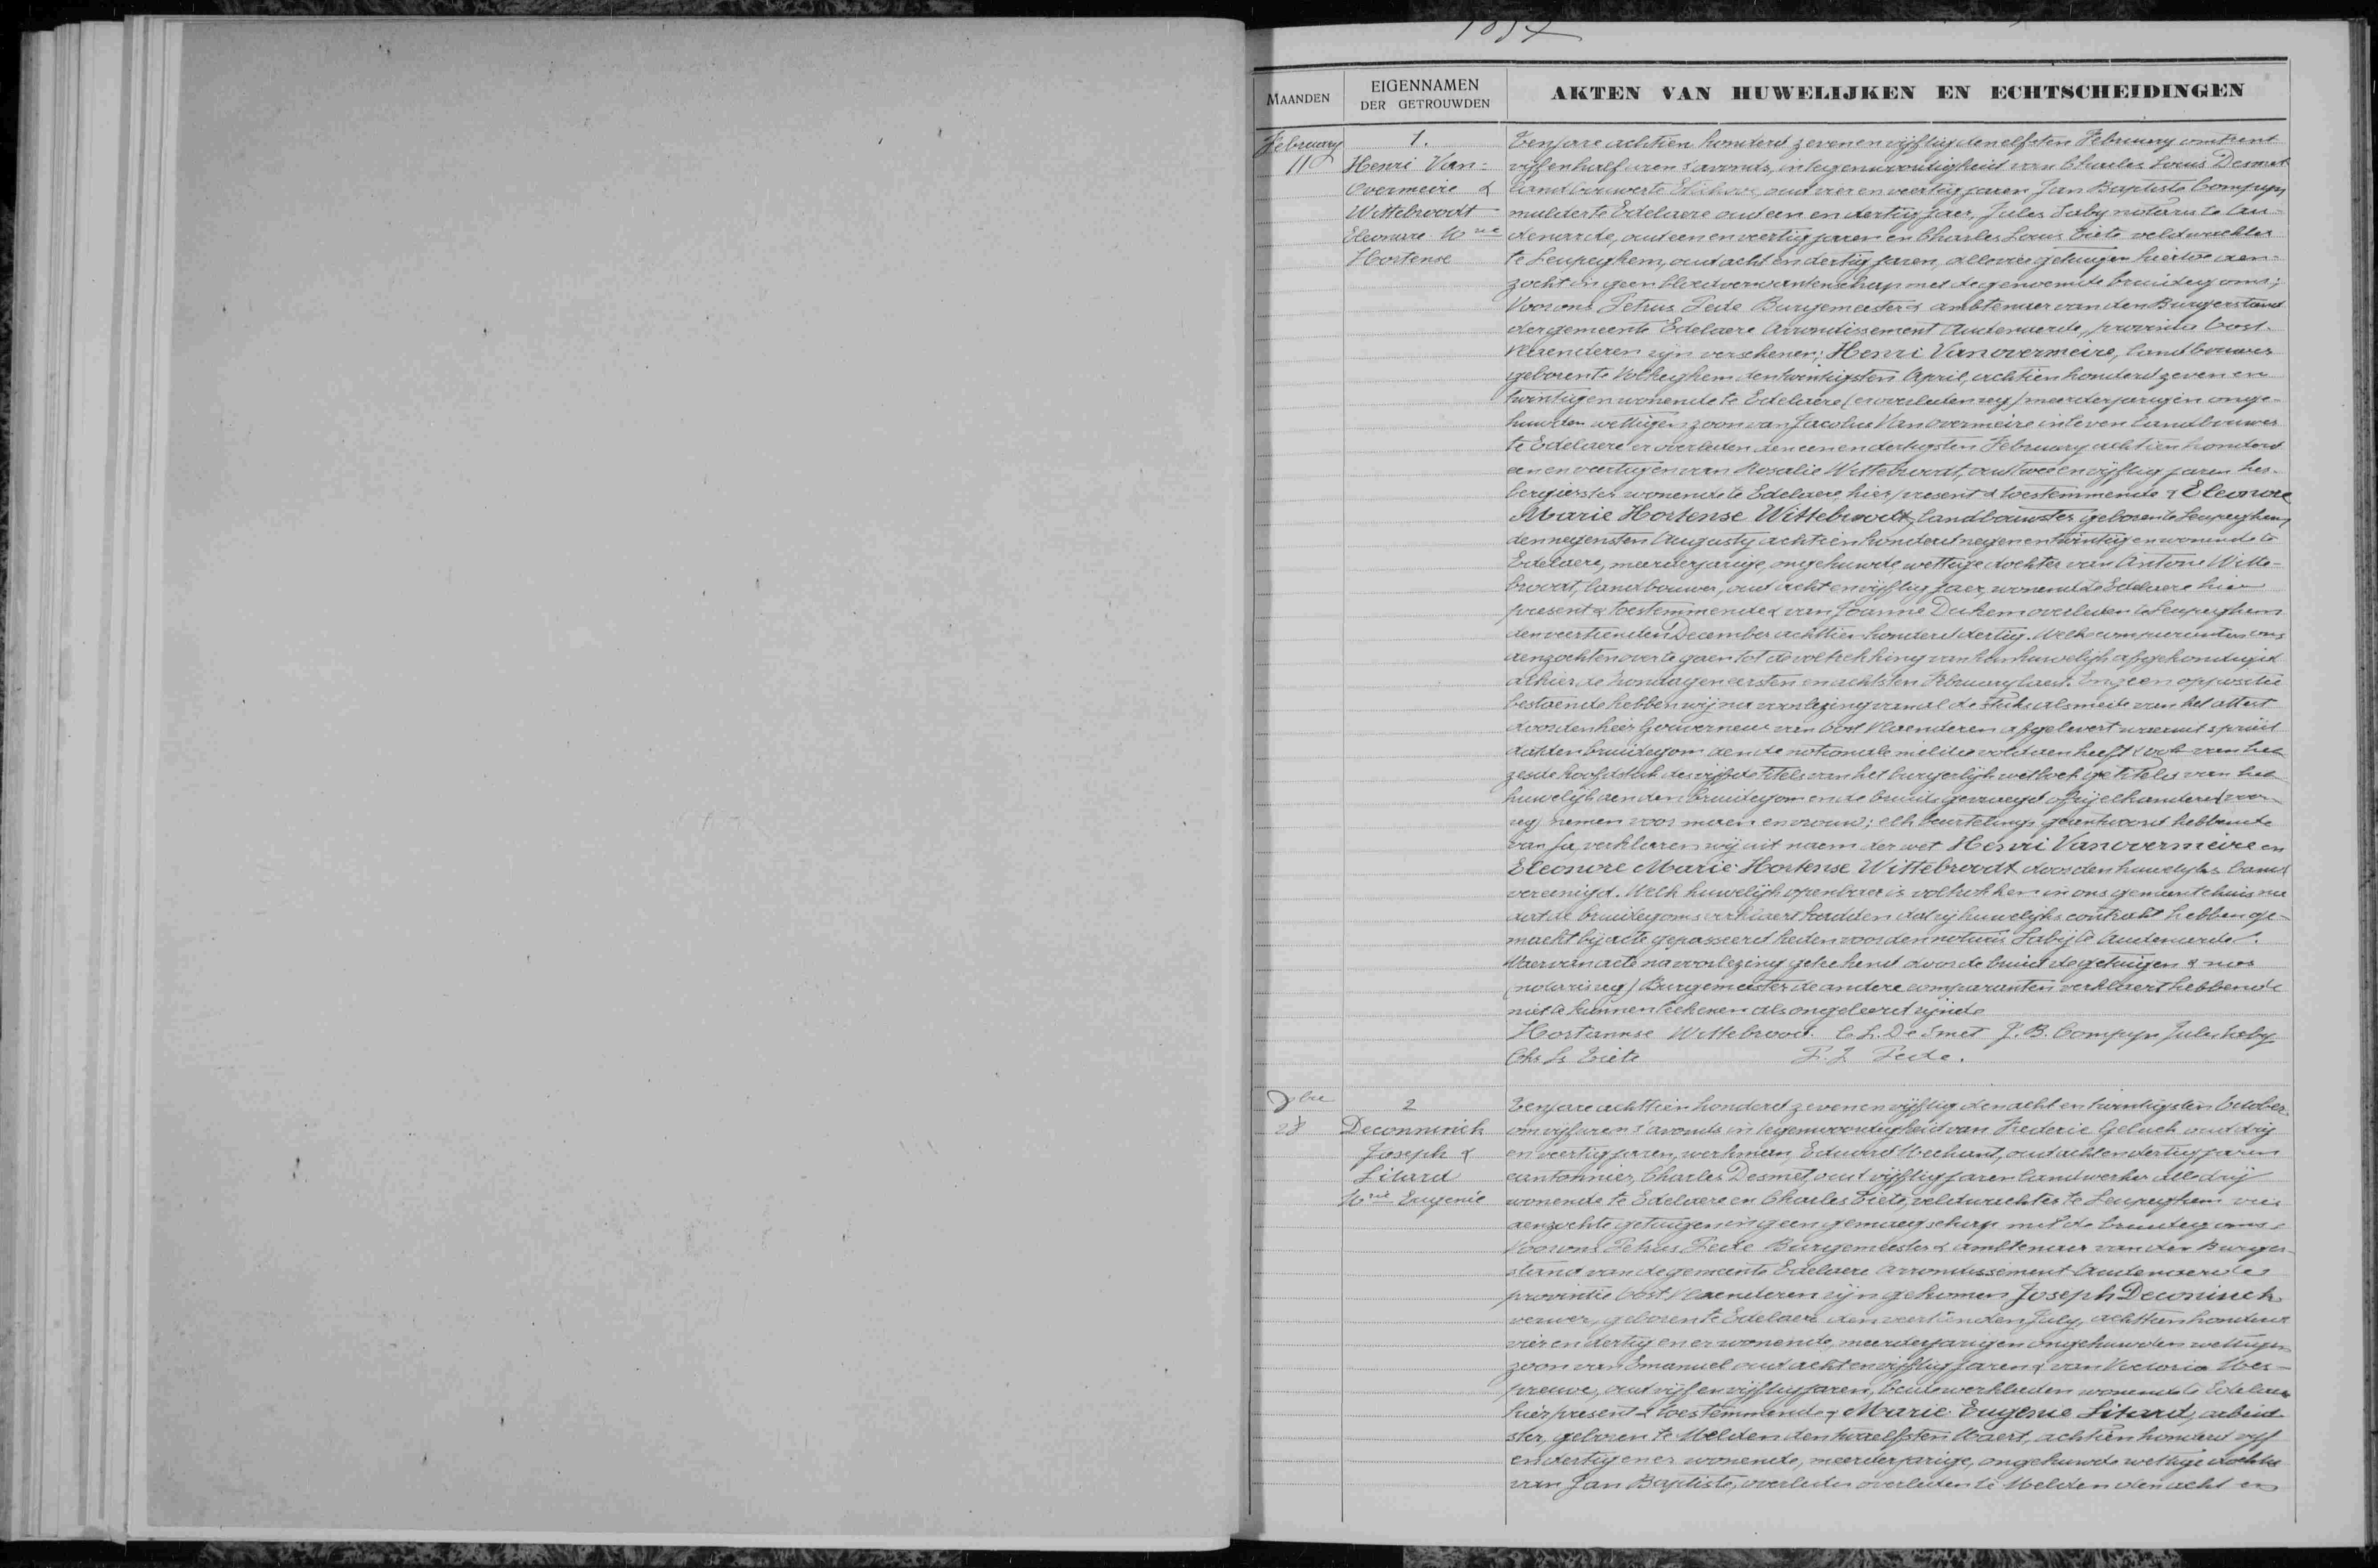 1857
MAANDEN
EIGENNAMEN
DER GETROUWDEN
AKTEN VAN HUWELIJKEN EN ECHTSCHEIDINGEN
February
11
1.
Henri Van=
Overmeire &
Wittebroodt
Eleonore Mrie
Hortense
Ten jare achtien honderd zevenenvijftig den elfsten February omtrent
vijf en half uren s'avonds, in tegenwoordigheid van Charles Louis Desmet
landbouwer te Etichove, oud vier en veertig jaren, Jan Baptiste Compyn
mulder te Edelaere oud een en dertig jaer, Jules Saby notaris te Au=
denaerde, oud een en veertig jaren en Charles Louis Tiete veldwachter
te Leupeghem, oud acht en dertig jaren, alle vier getuigen hiertoe aen=
zocht in geen bloedverwantenschap met de genoemde bruidegoms;
Voor ons Petrus Fede Burgemeester & ambtenaer van den Burgerstand
der gemeente Edelaere Arrondissement Audenaerde, provincie Oost-
Vlaenderen zijn verschenen; Henri Vanovermeire, landbouwer
geboren te Volkeghem den twintigsten April, achtien honderd zeven en
twintig en wonende te Edelaere (er overleden reg) meerderjarigen onge-
huwden wettigen zoon van Jacobus Vanovermeire in leven landbouwer
te Edelaere er overleden den eenendertigsten February achtien honderd
een en veertig en van Rosalie Wittebroodt, oud twee en vijftig jaren her-
bergierster wonende te Edelaere, hier present & toestemmende & Eleonore
Marie Hortense Wittebroodt, landbouwster geboren te Leupeghem
den negensten Augusty achtien honderd negenentwintig en wonende te
Edelaere, meerderjarige, ongehuwde, wettige dochter van Antone Witte-
broodt, landbouwer, oud acht en vijftig jaer, wonende te Edelaere hier
present & toestemmende & van Joanne Dukem overleden te Leupeghem
den veertienden December achttien honderd dertig. Welke comparanten ons
aenzochten over te gaen tot de voltrekking van hun huwelijk afgekondigd
alhier, de zondagen eersten en achtsten February laest. En geen oppositie
bestaende hebben wij na voorlezing van al de stuks alsmede van het attest
door den heer Gouverneur van Oost Vlaenderen afgelevert waeruit spruit
dat den bruidegom aen de nationale militie voldaen heeft & ook van het
zesde hoofdstuk des vijfde titels van het burgerlijk wetboek getitelt van het
huwelijk aen den bruidegom en de bruid gevraegd of zij elkanderen (voor
reg) nemen voor maen en vrouw; elk beurtelings geantwoord hebbende
van ja, verklaren wij uit naem der wet Henri Vanovermeire en
Eleonore Marie Hortense Wittebroodt door den huwelyks band
vereenigd. Welk huwelijk openbaer is voltrokken in ons gemeentehuis na
dat de bruidegoms verklaert hadden dat zij huwelijks contrakt hebben ge-
maekt bij acte gepasseerd heden voor den notaris Saby te Audenaerde.
Waervan acte na voorlezing geteekend door de bruid de getuigen & nos
(notaris reg) Burgemeester de andere comparanten verklaert hebbende
niet te kunnen teekenen als ongeleerd zijnde
Hortannse Wittebrood. C. L. De Smet J. B. Compyn Jules Saby
Chs Ls Tiete P. J. Fede.
8bre
28
2
Deconninck
Joseph &
Litard
Mrie Eugenie
Ten jare achttien honderd zevenenvijftig den acht en twintigsten October
om vijf uren s'avonds in tegenwoordigheid van Frederic Geluck oud drij
en veertig jaren, werkman, Eduard Mechant, oud acht en dertig jaren
cantonnier, Charles Desmet, oud vijftig jaren landwerker alle drij
wonende te Edelaere en Charles Tiete, veldwachter te Leupeghem vier
aenzochte getuigen in geen gemaegschap met de bruidegoms
Voor ons Petrus Fede Burgemeester & ambtenaer van den Burger-
stand van de gemeente Edelaere Arrondissement Audenaerde
provintie Oost Vlaenderen zijn gekomen Joseph Deconinck
verwer, geboren te Edelaere den veertienden July, achttien honderd
vier en dertig en er wonende, meerderjarigen ongehuwden wettigen
zoon van Emanuel oud acht en vijftig jaren & van Victoria
oud vijf en vijftig jaren, beide werklieden wonende te Edelaere
hier present & toestemmende & Marie Eugenie Litard, arbeid
ster, geboren te Melden den twaelfsten Maert, achtien honderd vijf
en dertig en er wonende, meerderjarige, ongehuwde wettige dochter
van Jan Baptiste, overleden overleden te Melden den acht en